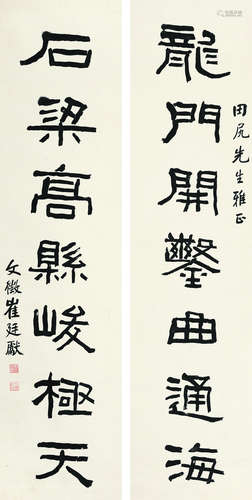 田尻先生雅正
龍門開鑿曲通海
石梁髙縣峻極天
文徵崔廷獻